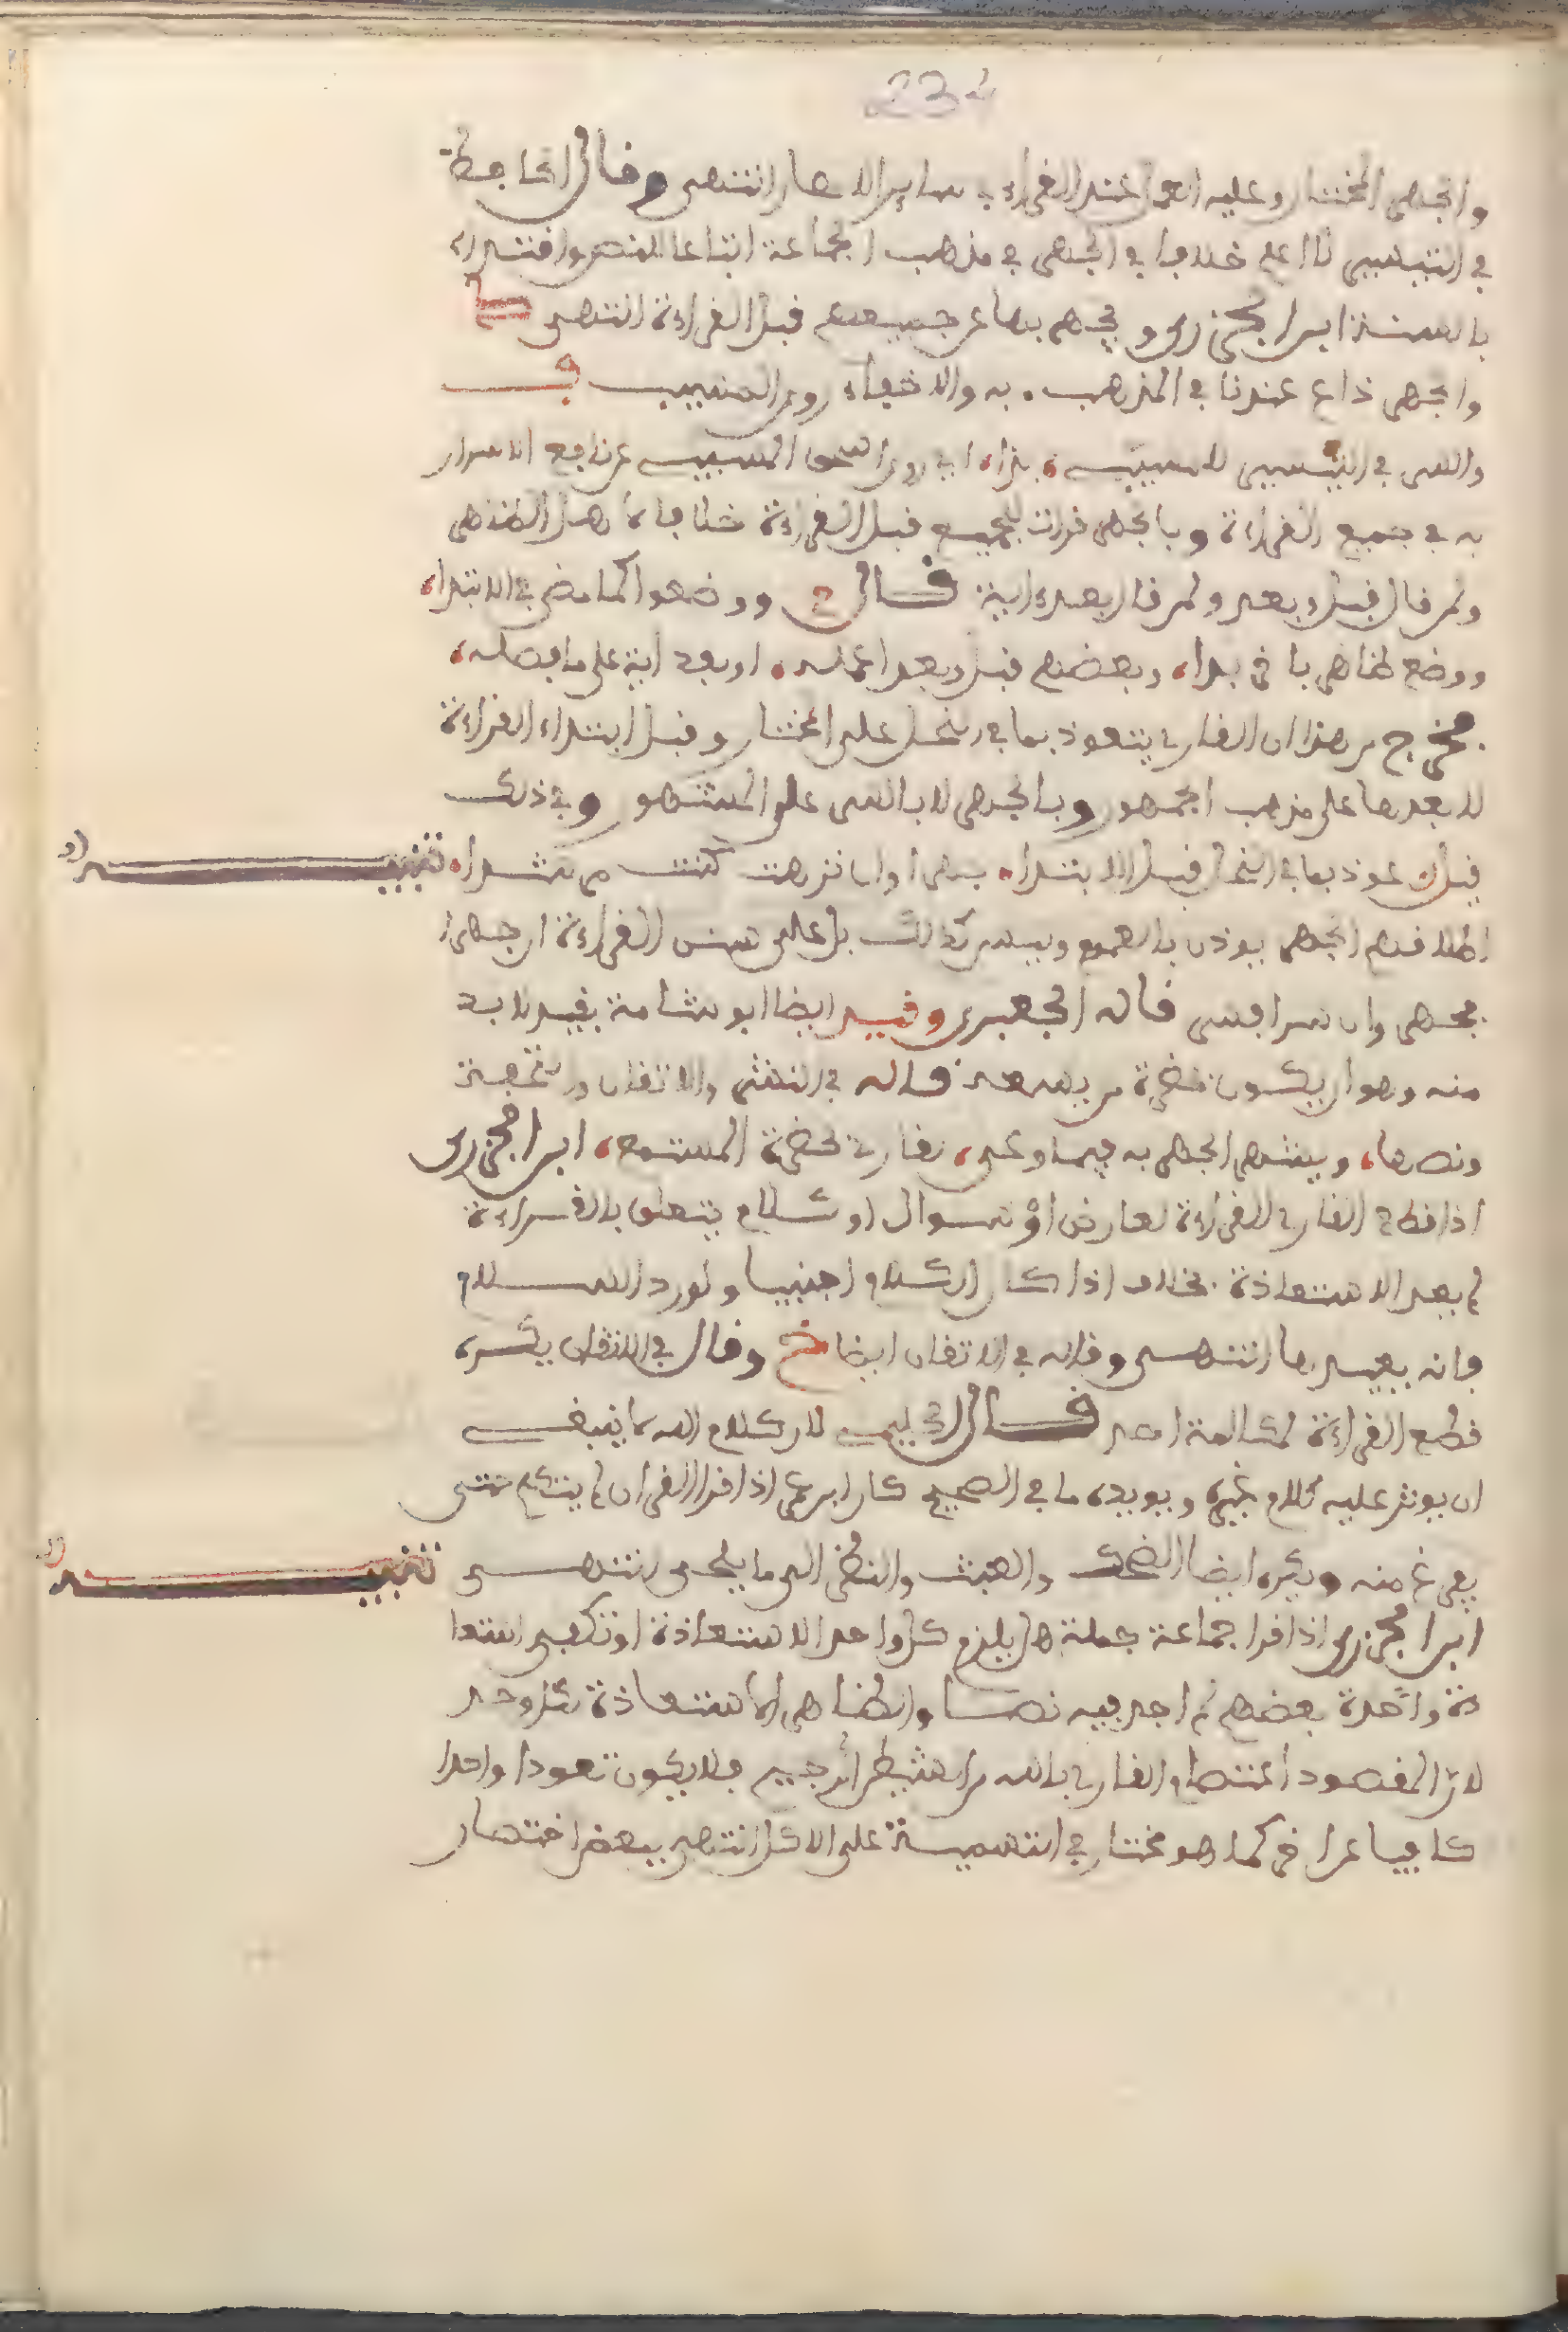 234
والجهر المختار وعليه العمل عند القراء بساير الامصار انتهى وقال الحافظ
في التيسير لا اعلم خلافا في الجهر في مذهب الجماعة اتباعا للنص واقتداء
بالسنة ابن الجزري ويجهر بها عن جميعهم قبل القراءة انتهى
والجهر ذاع عندنا في المذهب به والاخفاء روى المسيب
والسر في التيسير للمسيبي، بذاء، اي روى اسحق المسيبي عن نافع الاسرار
به في جميع القراءة وبالجهر قرات للجميع قبل القراءة خلافا لاهل الظاهر
ولمن قال قبل وبعد ولمن قال بعد ءاية قال ووضعوا كما مضى في الابتداء،
ووضع ظاهر با في بداء، وبعضهم قبل وبعد اعمله، او بعد اية على ما يصله،
مخرج من هذا ان القاري يتعوذ بما في النحل على المختار وقبل ابتداء القراءة
لا بعدها على مذهب الجمهور وبالجهر لا بالسر على المشهور وفي ذلك
قيل عوذ بما في النحل قبل الابتداء، بجهر اوان نزهت كنت مرشدا، تنبيه
اطلاقهم الجهر يوذن بالعموم وليس كذلك بل على سنن القراءة ان جهرا
فجهر وان سرا فسر قاله الجعبري وقيده ايضا ابو شامة بقيد لا بد
منه وهو ان يكون بحضرة من يسمعه قاله في النشر والاتقان والتحفة
ونصها، ويشهر الجهر به فيما وعى، لقاري بحضرة المستمع، ابن الجزري
اذا قطع القاري القراءة لعارض او سوال او كلام يتعلق بالقراءة
لم يعد الاستعاذة بخلاف اذا كان الكلام اجنبيا ولو رد السلام
فانه يعيدها انتهى وقاله في الاتقان ايضا خ وقال في الاتقان يكره
قطع القراءة لمكالمة احد قال الحليمي لان كلام الله لا ينبغي
ان يوثر عليه كلام غيره ويويده ما في الصحيح كان ابن عمر اذا قرا القران لم يتكلم حتى
يفرغ منه ويكره ايضا الضحك والعبث والنظر الى ما يلهي انتهى تنبيه
ابن الجزري اذا قرا جماعة جملة هل يلزم كل واحد الاستعاذة او تكفي استعا
ذة واحدة بعضهم لم اجد فيه نصا والظاهر الاستعاذة لكل واحد
لان المقصود اعتصام القاري بالله من الشيطن الرجيم فلا يكون تعوذ واحدا
كافيا عن اخر كما هو مختار في التسمية على الاكل انتهى ببعض اختصار